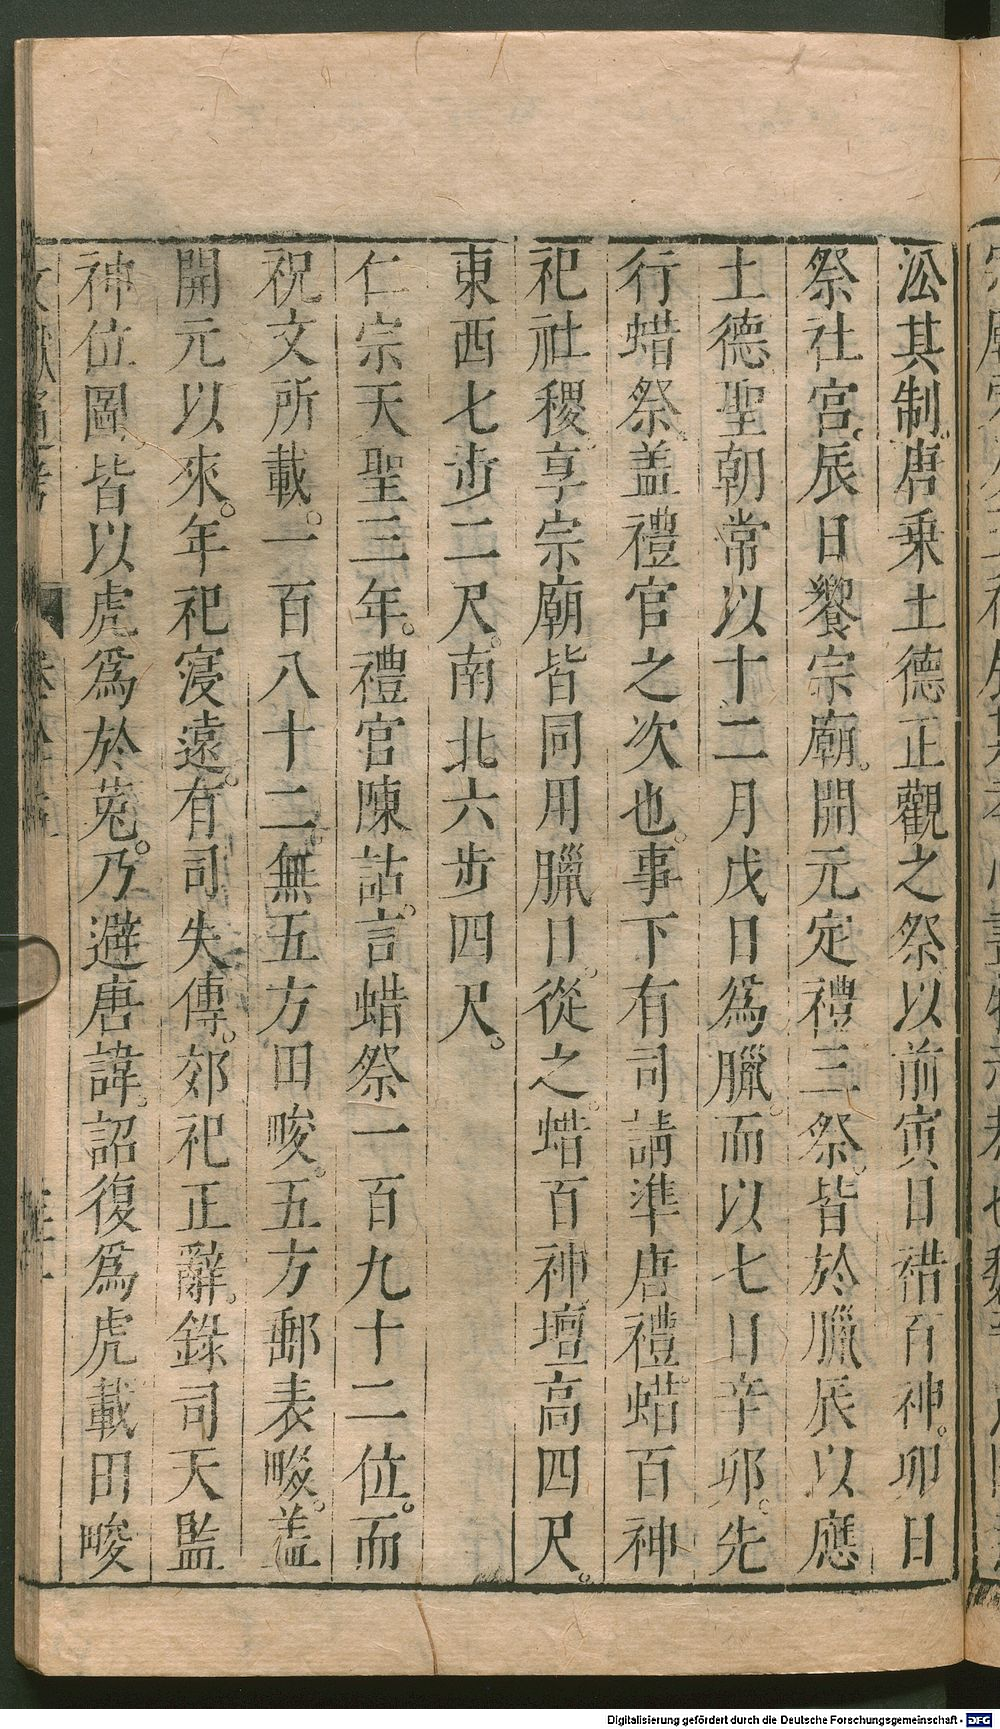 泌其制。唐乗土德正觀之祭以前寅日禇百神。卯日
祭社宫。辰日饗宗廟。開元定禮三祭。皆於臘辰以應
土德聖朝常以十二月戊日爲臘。而以七日辛卯。先
行蜡祭。盖禮官之次也。事下有司請準唐禮。蜡百神
祀社稷。享宗廟皆同用臘日。從之。蜡百神壇高四尺。
東西七步二尺。南北六步四尺。
仁宗天聖三年。禮官陳詁。言蜡祭一百九十二位。而
祝文所載。一百八十二。無五方田畯。五方郵表畷。盖
開元以來。年祀寖遠。有司失傳。郊祀正辭。錄司天監
神位圖。皆以虎爲於菟。乃避唐諱。詔復爲虎載田畯
Digitalisierung gefördert durch die Deutsche Forschungsgemeinschaft - DFG